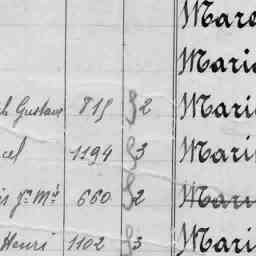 Mare
Marie
Gustave 815 2 Marie
cel 1194 3 Marie
660 2 Marie
Henri 1102 3 Marie